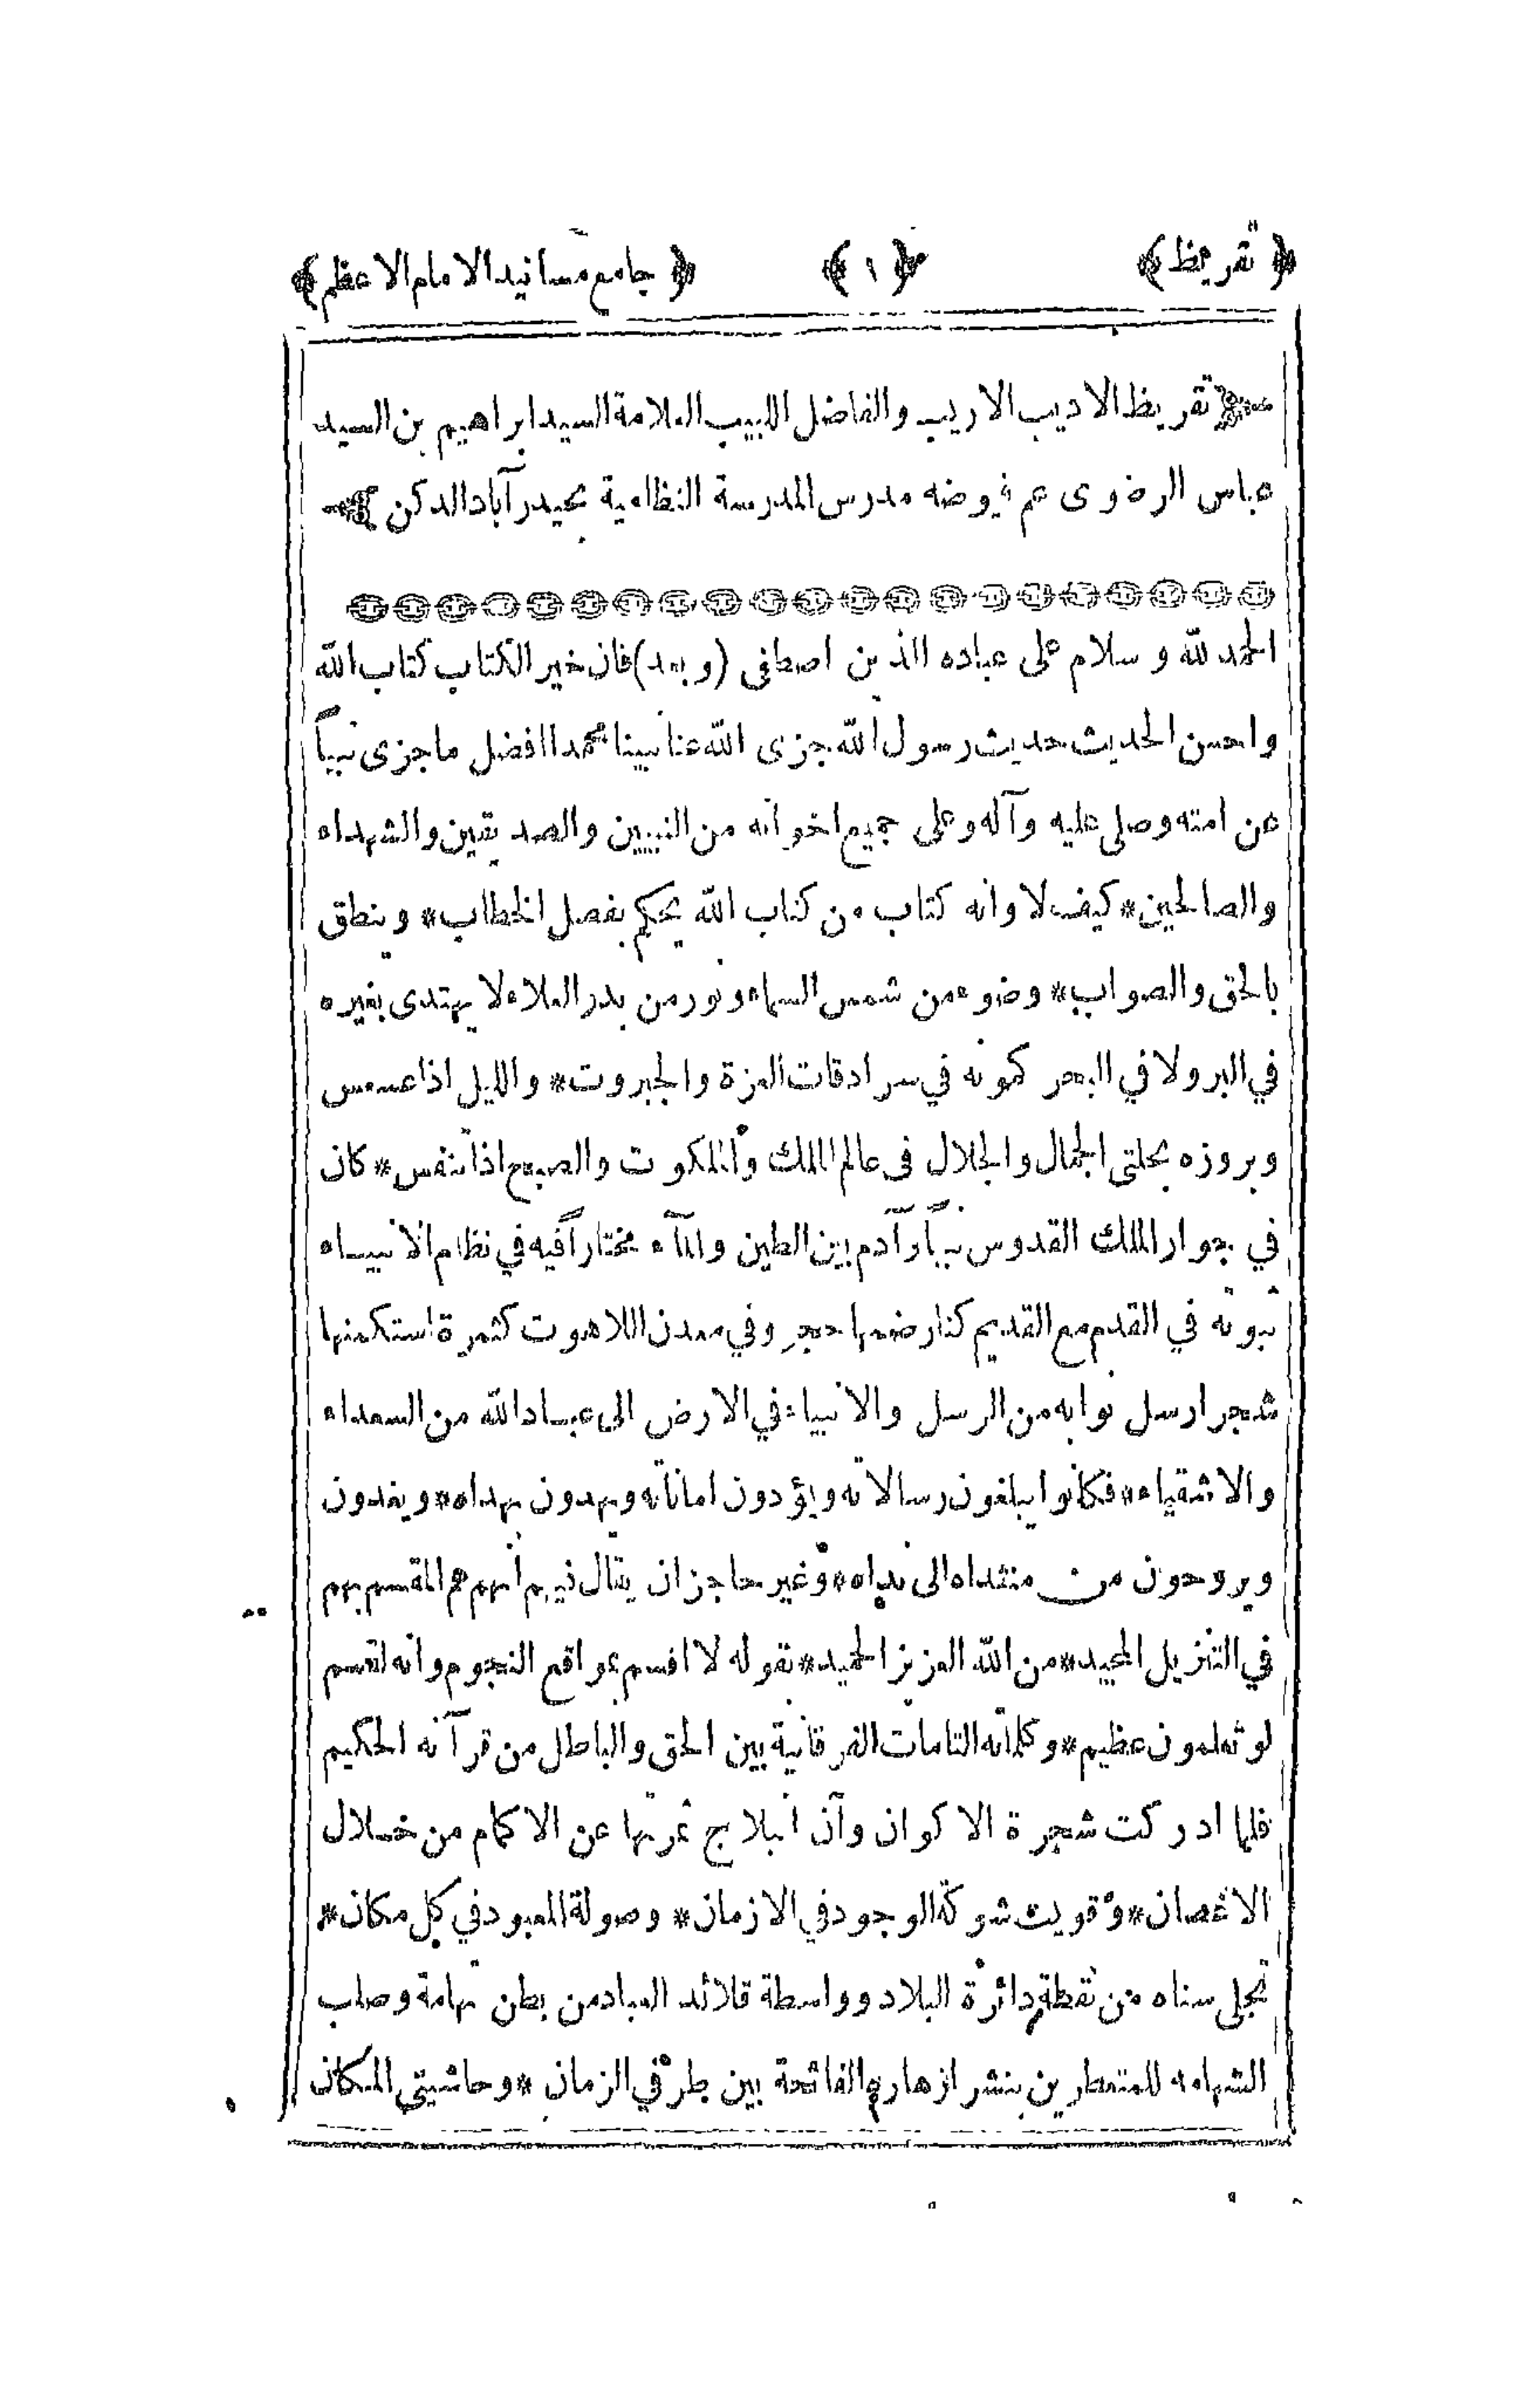 ﴿ تقريظ ﴾ ﴿ ١ ﴾ ﴿ جامع مسانيد الامام الاعظم ﴾
تقريظ الاديب الاريب والفاضل اللبيب العلامة السيد ابراهيم بن السيد
عباس الرضوى عم فيوضه مدرس المدرسة النظامية بحيدرآباد الدكن
الحمد لله وسلام على عباده الذين اصطفى (وبعد) فان خير الكتاب كتاب الله
واحسن الحديث حديث رسول الله جزى الله عنا نبينا محمدا افضل ما جزى نبياً
عن امته وصلى عليه وآله وعلى جميع اخوانه من النبيين والصديقين والشهداء
والصالحين * كيف لا وانه كتاب من كتاب الله يحكم بفصل الخطاب * وينطق
بالحق والصواب * وضوء من شمس السماء ونور من بدر العلاء لا يهتدى بغيره
في البر ولا في البحر كمونه في سرادقات العزة والجبروت * والليل اذا عسعس
وبروزه بحلتى الجمال والجلال فى عالم الملك والملكوت والصبح اذا تنفس * كان
في جوار الملك القدوس نبياً وآدم بين الطين والمآء مختاراً فيه في نظام الانبياء
نبوته في القدم مع القديم كنار ضمها حجر وفي معدن اللاهوت كثمرة استكمنها
شجر ارسل نوابه من الرسل والانبياء في الارض الى عباد الله من السعداء
والاشقياء * فكانوا يبلغون رسالاته ويؤدون اماناته ويهدون بهداه * ويغدون
ويروحون من منتداه الى * وغير حاجز ان يقال فيهم انهم هم المقسم بهم
في التنزيل المجيد * من الله العزيز الحميد * بقوله لا اقسم بمواقع النجوم وانه لقسم
لو تعلمون عظيم * وكلماته التامات الفرقانية بين الحق والباطل من قرآنه الحكيم
فلما ادركت شجرة الاكوان وآن انبلاج غرتها عن الاكمام من خلال
الاغصان * وقويت شوكة الوجود في الازمان * وصولة المعبود في كل مكان *
تجلى سناه من نقطة دائرة البلاد وواسطة قلائد العباد من بطن تهامة وصلب
الشهامه للمتعطرين بنشر ازهاره الفائحة بين طرفي الزمان * وحاشيتى المكان